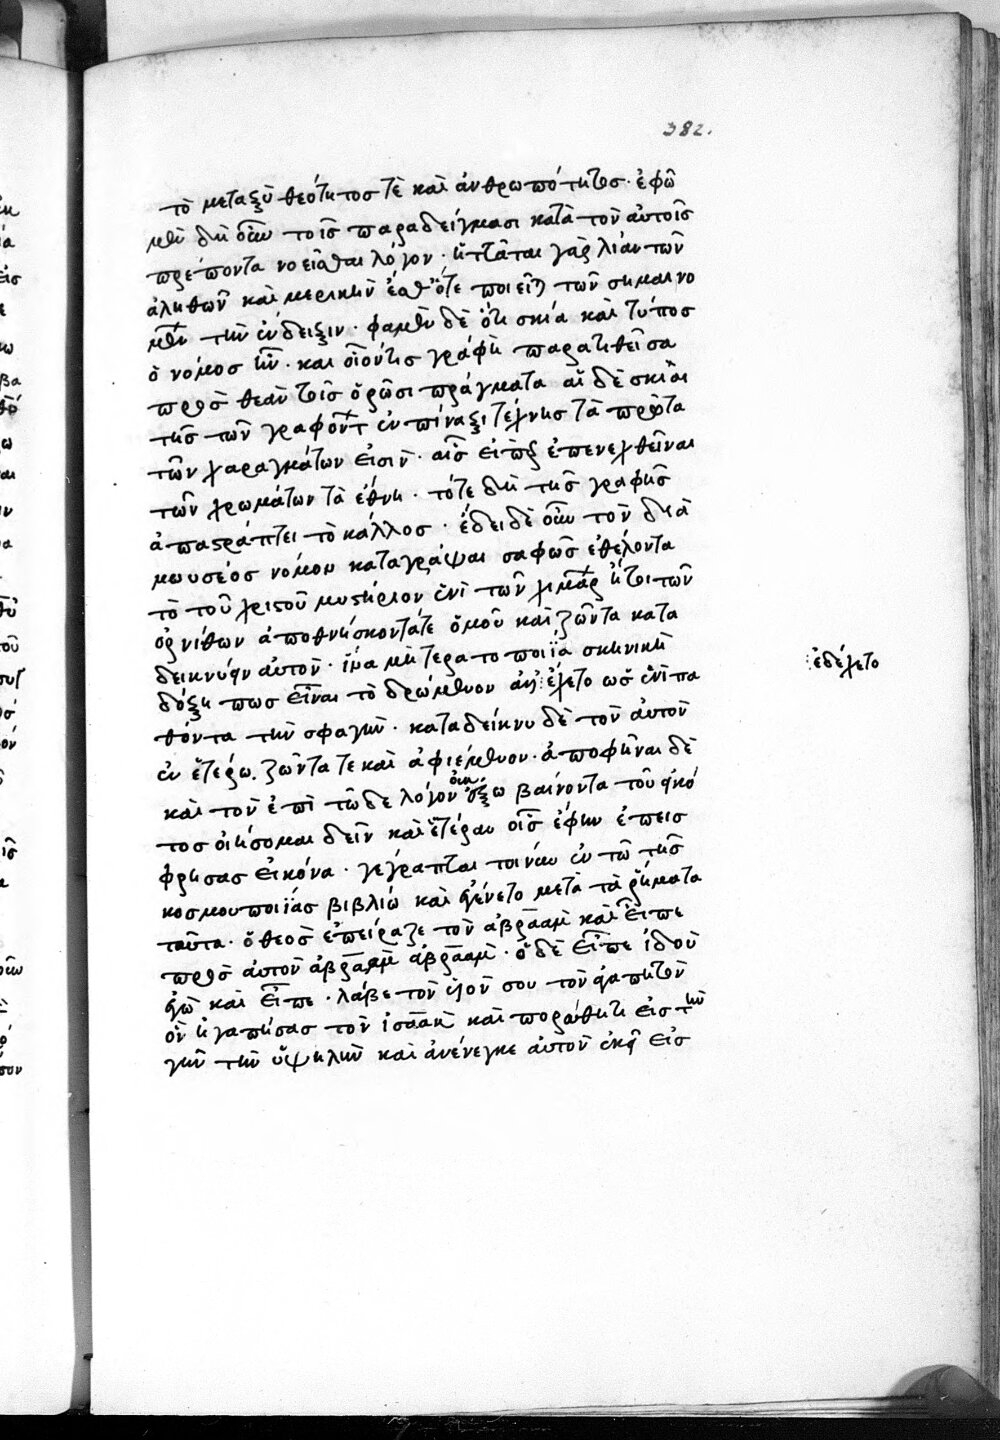 382.
τὸ μεταξὺ θεότητος τὲ καὶ ἀνθρωπότητος· ἐφῶ
μὲν δὴ οὖν τοῖς παραδείγμασι κατὰ τὸν αὐτοῖς
πρέποντα νοεῖσθαι λόγον· ἡττᾶται γὰρ λίαν τῶν
ἀληθῶν καὶ μερικὴν ἔσθ' ὅτε ποιεῖται τῶν σημαινο
μένων τὴν ἔνδειξιν· φαμὲν δὲ ὅτι σκιὰ καὶ τύπος
ὁ νόμος ἦν· καὶ οἷόν τις γράφὴ παρατιθεῖσα
πρὸς θεὰν τοῖς ὁρῶσι πράγματα αἱ δὲ σκιαὶ
τῆς τῶν γραφόντων ἐν πίναξι τέχνης τὰ πρῶτα
τῶν χαραγμάτων εἰσὶν· αἷς εἴπερ ἐπενεχθεῖναι
τῶν χρωμάτων τὰ ἔθνη· τότε δὴ τῆς γραφῆς
ἀπαστράπτει τὸ κάλλος· ἔδει δὲ οὖν τὸν διὰ
μωυσέος νόμον καταγράψαι σαφῶς ἐθέλοντα
τὸ τοῦ χριστοῦ μυστήριον ἑνὶ τῶν χιμάρων ἤτοι τῶν
ὀρνίθων ἀποθνήσκοντά τε ὁμοῦ καὶ ζῶντα κατα
δεικνύειν αὐτὸν· ἵνα μὴ τερατοποιΐα σκηνικὴ
δόξῃ πως εἶναι τὸ δρώμενον ἀν ἐχετο ὡς ἑνὶ πα
θόντα τὴν σφαγὴν· καταδείκνυ δὲ τὸν αὐτὸν
ἐν ἑτέρω. ζῶντα τε καὶ ἀφιέμενον· ἀποφῆναι δὲ
καὶ τὸν ἐπὶ τῶδε λόγον οὐκ ἔξω βαίνοντα τοῦ εἰκό
τος οἰήσομαι δεῖν καὶ ἑτέραν οἷς ἔφην ἐπεισ
φρήσας εἰκόνα· γέγραπται τοίνυν ἐν τῶ τῆς
κοσμοποιΐας βιβλίω καὶ ἐγένετο μετὰ τὰ ῥήματα
ταῦτα· ὁ θεὸς ἐπείραζε τὸν ἀβραὰμ καὶ εἶπε
πρὸς αὐτὸν ἀβραὰμ ἀβραὰμ· ὁ δὲ εἶπε ἰδοὺ
ἐγὼ καὶ εἶπε· λάβε τὸν υἱόν σου τὸν ἀγαπητὸν
ὃν ἠγαπήσας τὸν ἰσαὰκ καὶ πορεύθητι εἰς τὴν
γῆν τὴν ὑψηλὴν καὶ ἀνένεγκε αὐτὸν ἐκεῖ εἰς
ἐδέχετο